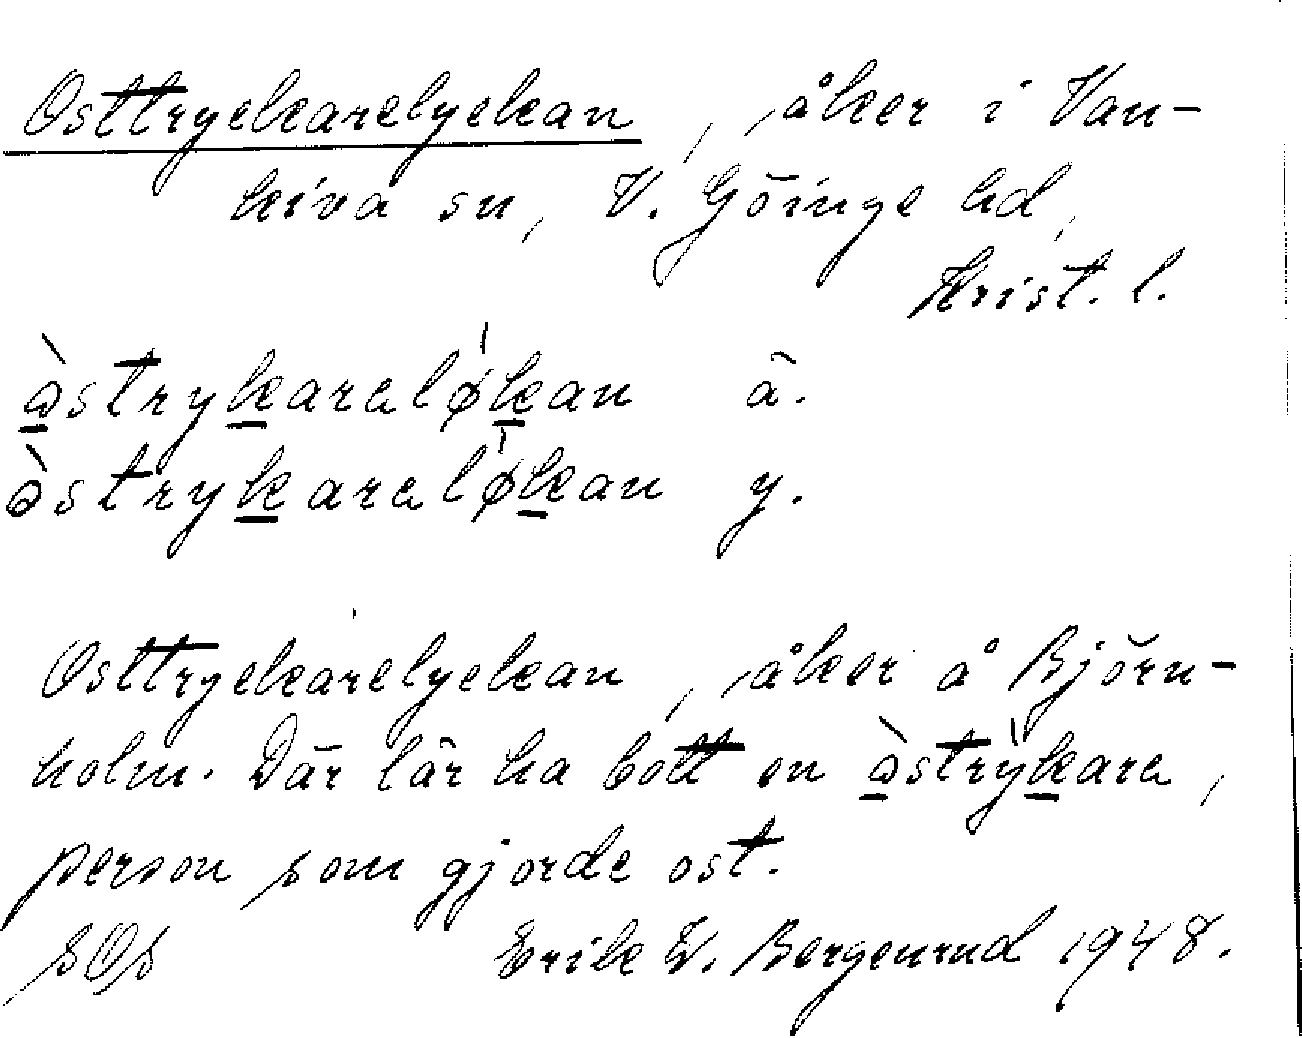 Osttryckarelyckan, åker i Van-
kiva sn, V. Göinge hd,
Krist. l.
ə̀strykaraløkan ä.
ə̀strykaraløkan y.
Osttryckarelyckan, åker å Björn-
holm. Där lär ha bott en ə̀strỳkara,
person som gjorde ost.
Erik W. Bergenrud 1948.